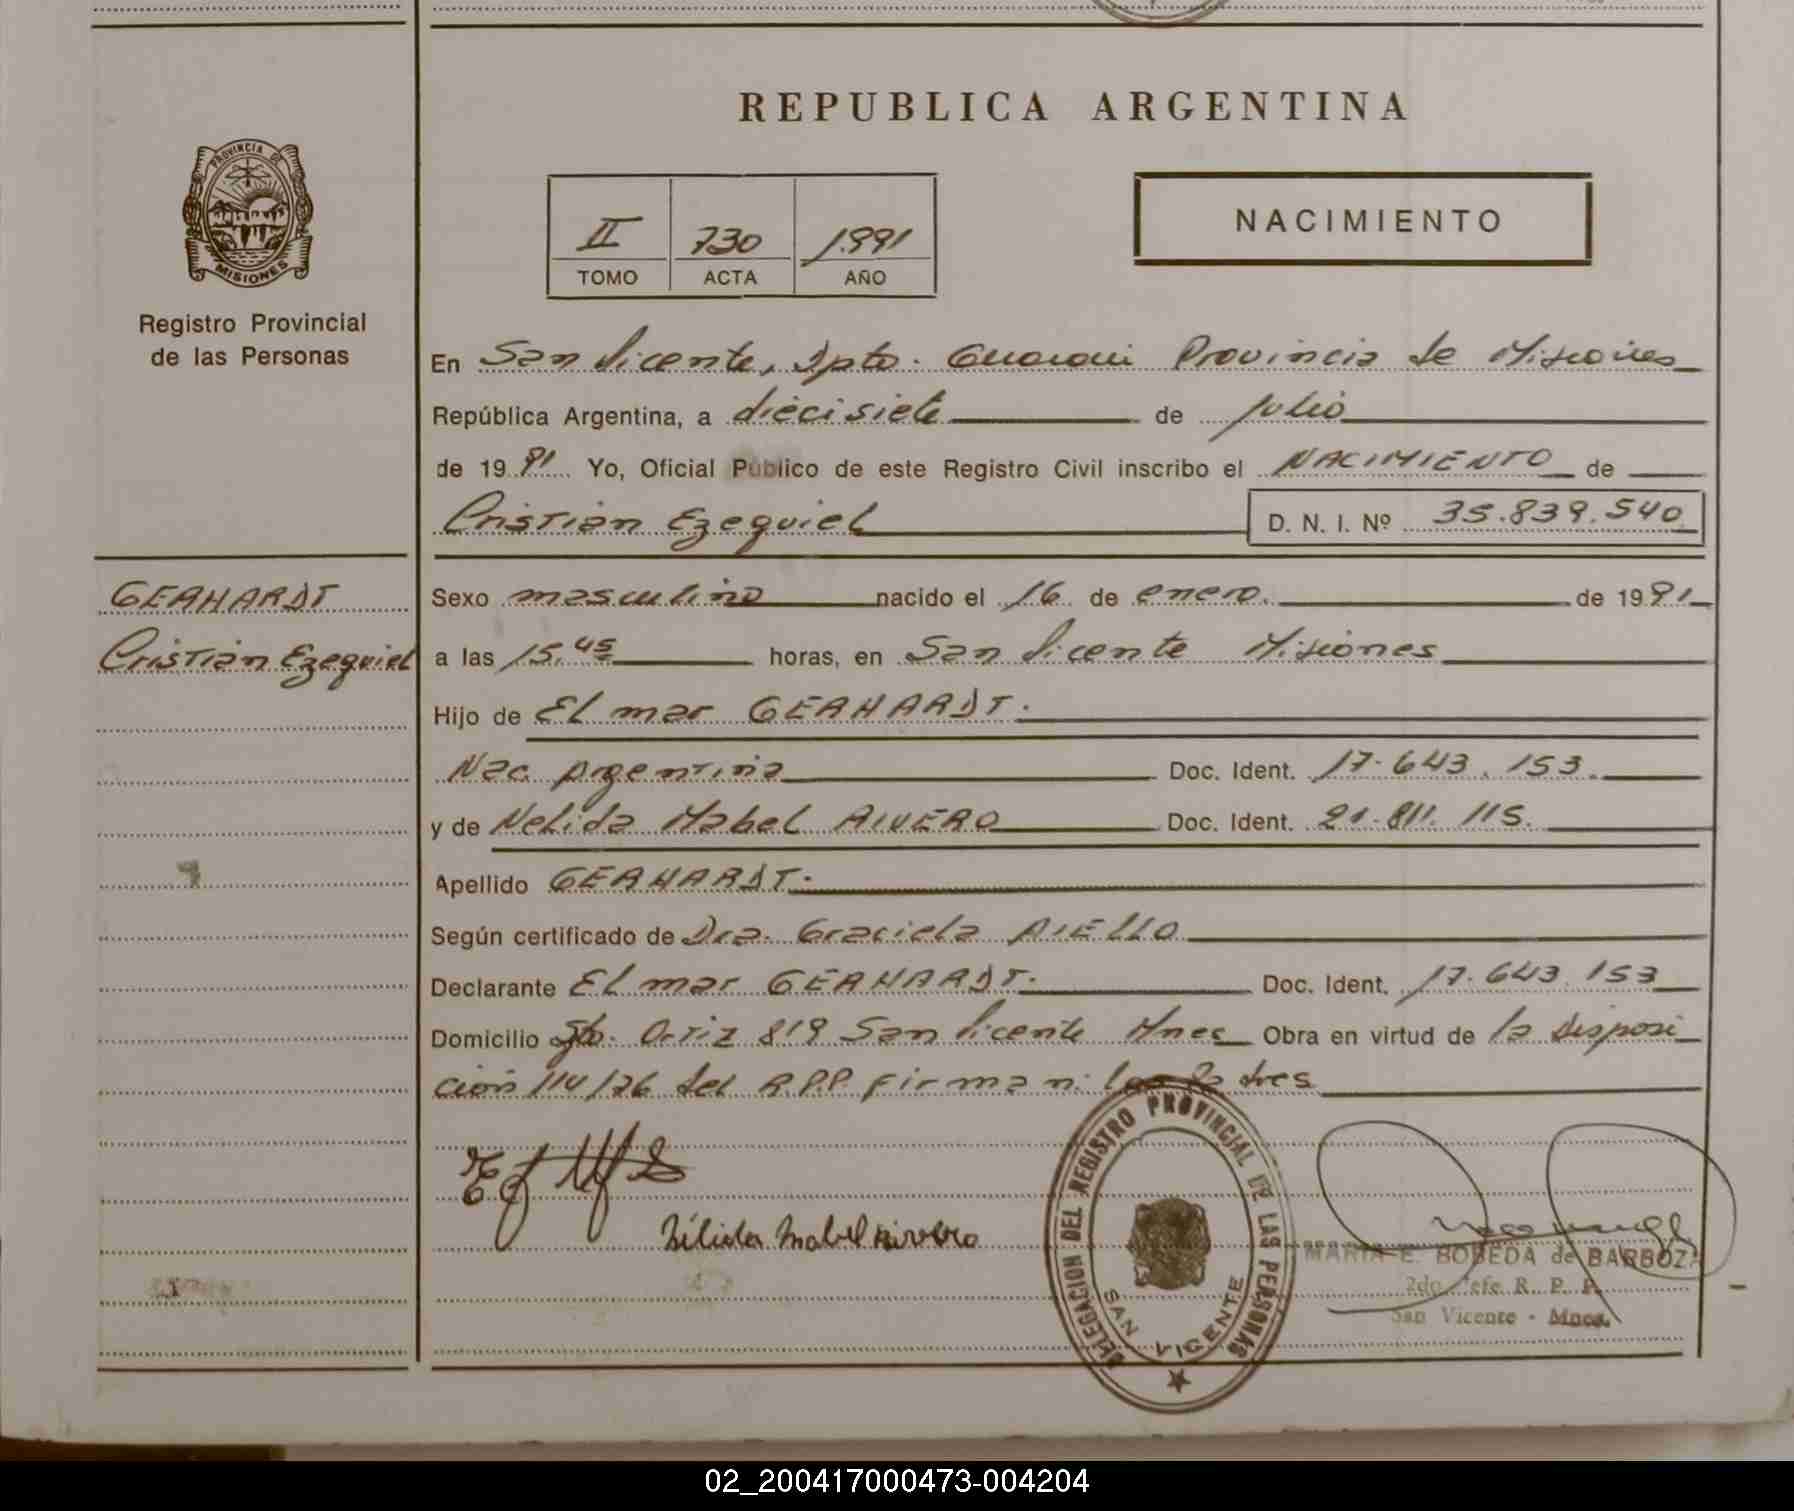 REPUBLICA ARGENTINA
PROVINCIA DE
MISIONES
Registro Provincial
de las Personas
II 730 1991
TOMO ACTA AÑO
NACIMIENTO
En San Vicente, Dpto. Guarani Provincia de Misiones
República Argentina, a diecisiete de julio
de 1991 Yo, Oficial Público de este Registro Civil inscribo el NACIMIENTO de
Cristian Ezequiel D. N. I. Nº 35.839.540
GERHARDT
Cristian Ezequiel
Sexo masculino nacido el 16 de enero. de 1991
a las 15,45 horas, en San Vicente Misiones
Hijo de El mar GERHARDT.
Nac. Argentina Doc. Ident. 17.643.153.
y de Nelida Mabel RIVERO Doc. Ident. 21.811.115.
Apellido GERHARDT.
Según certificado de Dra. Graciela AIELLO
Declarante El mar GERHARDT. Doc. Ident. 17.643.153
Domicilio Sto. Ortiz 819 San Vicente Mnes Obra en virtud de la Disposi
ción 114/76 del R.P.P. Firman: los Padres
Nélida Mabel Rivero
DELEGACION DEL REGISTRO PROVINCIAL DE LAS PERSONAS
SAN VICENTE
MARIA E. BOBEDA de BARBOZA
2do. Jefe R. P. P.
San Vicente - Mnes.
02_200417000473-004204